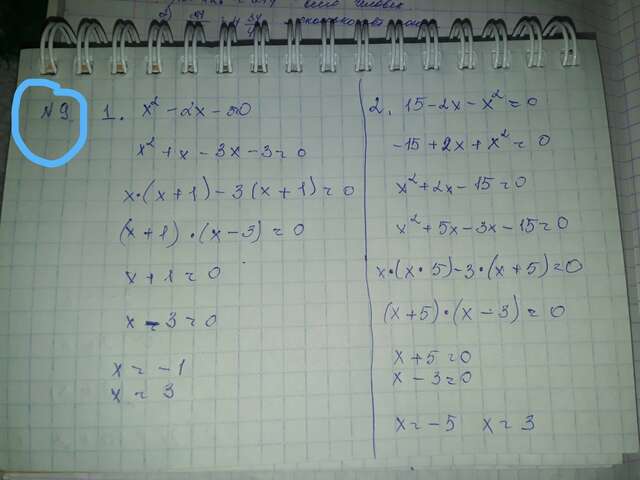 всего человек
№9
1. x² - 2x - 30
x² + x - 3x - 3 = 0
x·(x + 1) - 3(x + 1) = 0
(x + 1)·(x - 3) = 0
x + 1 = 0
x - 3 = 0
x = -1
x = 3
2. 15 - 2x - x² = 0
-15 + 2x + x² = 0
x² + 2x - 15 = 0
x² + 5x - 3x - 15 = 0
x·(x·5) - 3·(x + 5) = 0
(x + 5)·(x - 3) = 0
x + 5 = 0
x - 3 = 0
x = -5 x = 3